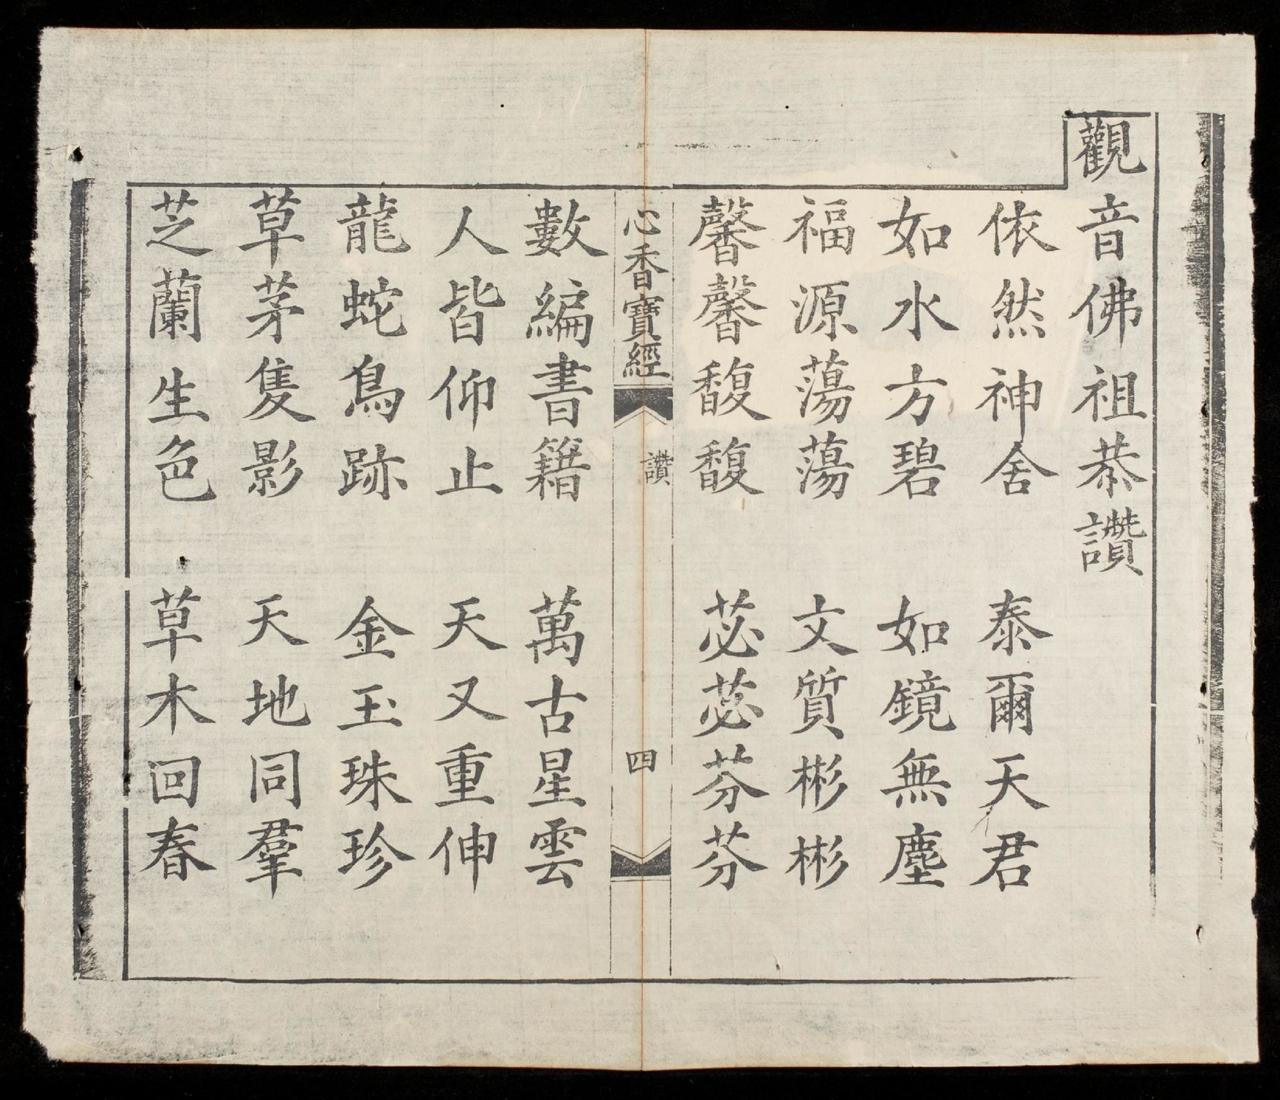 觀音佛祖恭讚
依然神舍　泰爾天君
如水方碧　如鏡無塵
福源蕩蕩　文質彬彬
馨馨馥馥　苾苾芬芬
心香寶經　讚　四
數編書籍　萬古星雲
人皆仰止　天又重伸
龍蛇鳥跡　金玉珠珍
草茅隻影　天地同羣
芝蘭生色　草木回春